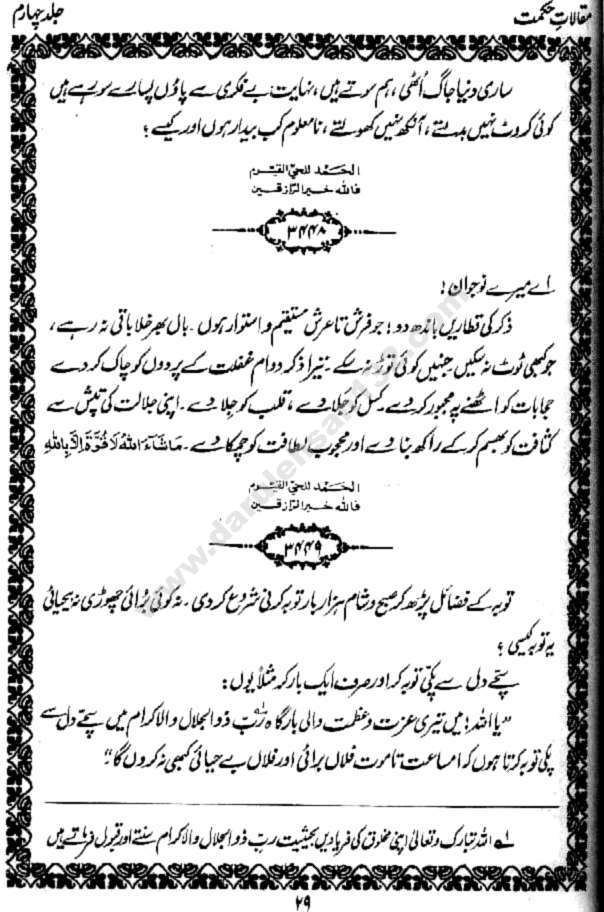 مقالاتِ حکمت
جلد چہارم
ساری دنیا جاگ اُٹھی، ہم سوتے ہیں، نہایت بے فکری سے پاؤں پسارے سو رہے ہیں
کوئی کروٹ نہیں بدلتے، آنکھ نہیں کھولتے، نامعلوم کب بیدار ہوں اور کیسے؟
الحمد للحی القیوم
فاللہ خیر الرازقین
۳۴۴۸
اے میرے نوجوان!
ذکر کی قطاریں باندھ دو؛ جو فرش تا عرش مستقیم و استوار ہوں۔ بال بھر خلا باقی نہ رہے،
جو کبھی ٹوٹ نہ سکیں جنہیں کوئی توڑ نہ سکے۔ تیرا ذکرِ دوام غفلت کے پردوں کو چاک کر دے
حجابات کو اٹھنے پہ مجبور کر دے۔ کسل کو جلا دے، قلب کو جِلا دے۔ اپنی جلالت کی تپش سے
کثافت کو بھسم کر کے راکھ بنا دے اور محجوب لطافت کو چمکا دے۔ مَاشَآءَ اللہُ لَا قُوَّةَ اِلَّا بِاللہِ
الحمد للحی القیوم
فاللہ خیر الرازقین
۳۴۴۹
توبہ کے فضائل پڑھ کر صبح و شام ہزار بار توبہ کرنی شروع کر دی۔ نہ کوئی بُرائی چھوڑی نہ بیحیائی
یہ توبہ کیسی؟
سچے دل سے پکّی توبہ کر اور صرف ایک بار کر مثلاً یوں:
"یا اللہ! میں تیری عزت و عظمت والی بارگاہ ربّ ذوالجلال والاکرام میں سچے دل سے
پکی توبہ کرتا ہوں کہ امساعت تا موت فلاں برائی اور فلاں بے حیائی کبھی نہ کروں گا"
۱؎ اللہ تبارک و تعالیٰ اپنی مخلوق کی فریادیں بحیثیت ربّ ذوالجلال والاکرام سنتے اور قبول فرماتے ہیں
۲۹